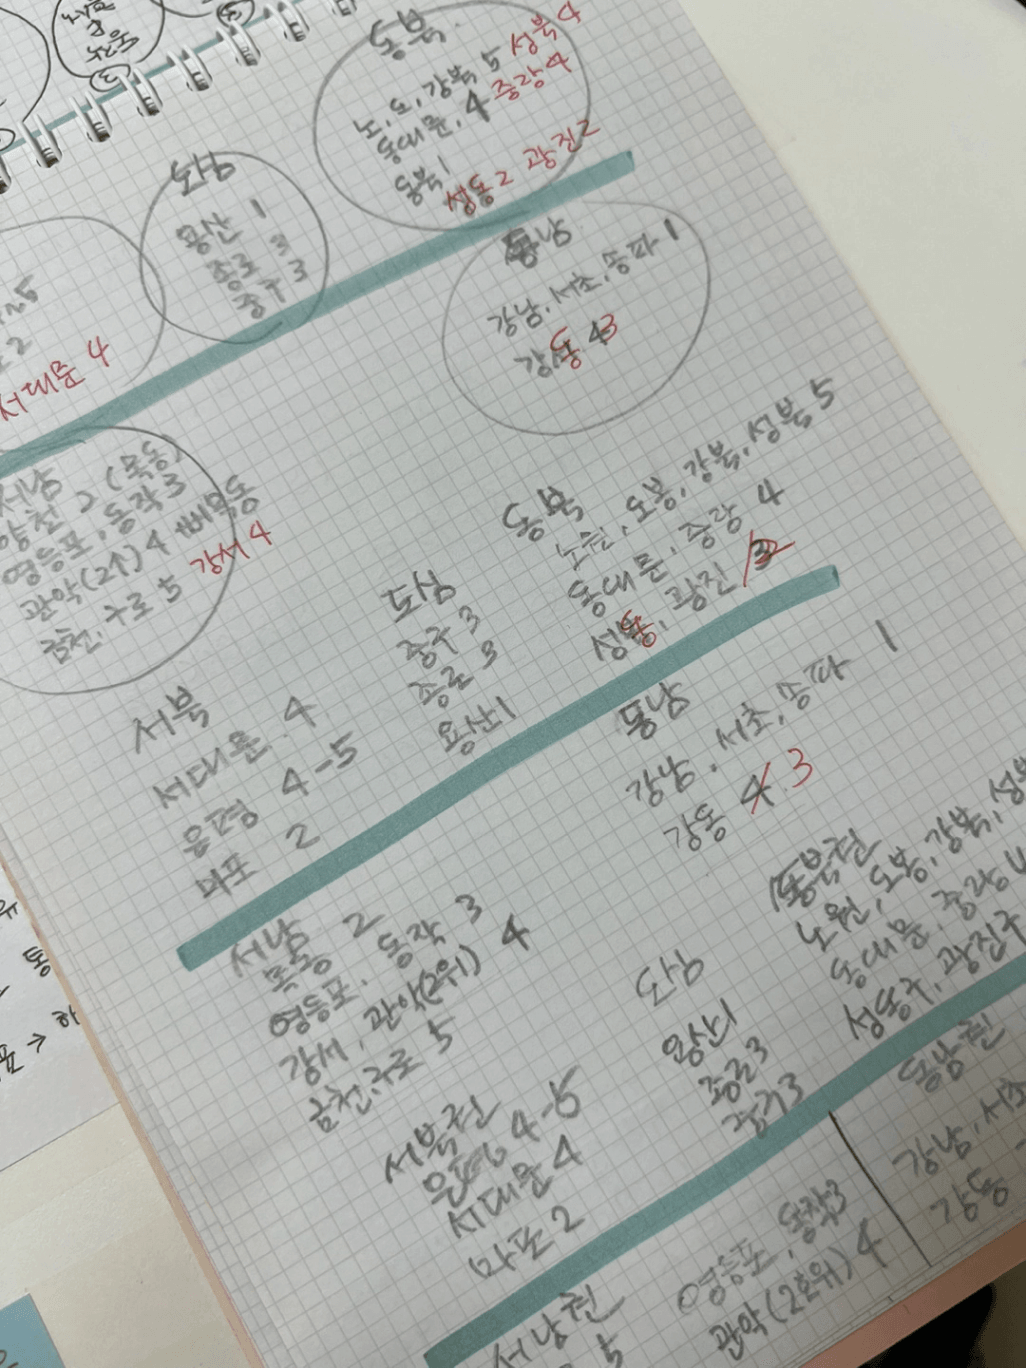 동북
노, 도, 강북 5 성북 4
동대문, 4 중랑 4
동북 1
성동 2 광진 2
도심
용산 1
종로 3
중구 3
동남
강남, 서초, 송파 1
강동 3
서대문 4
서남
양천 2 (목동)
영등포, 동작 3
관악(2↑) 4
금천, 구로 5 강서 4
동북
노원, 도봉, 강북, 성북 5
동대문, 중랑 4
성동, 광진
도심
중구 3
종로 3
용산 1
동남
강남, 서초, 송파 1
강동 4 3
서북
서대문 4
은평 4-5
마포 2
서남
목동 2
영등포, 동작 3
강서, 관악(2위) 4
금천, 구로 5
동북권
노원, 도봉, 강북,
동대문, 중랑 4
성동구, 광진구
도심
용산 1
종로 3
중구 3
서북권
은평 4-5
서대문 4
마포 2
동남권
강남, 서초
강동
서남권
영등포, 동작 3
관악(2호위) 4
5